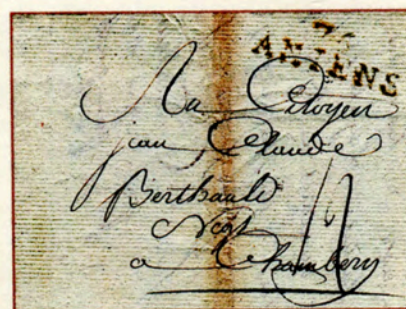 76
AMIENS
Au Citoyen
jean Claude
Berthault
Negt
a Chambery